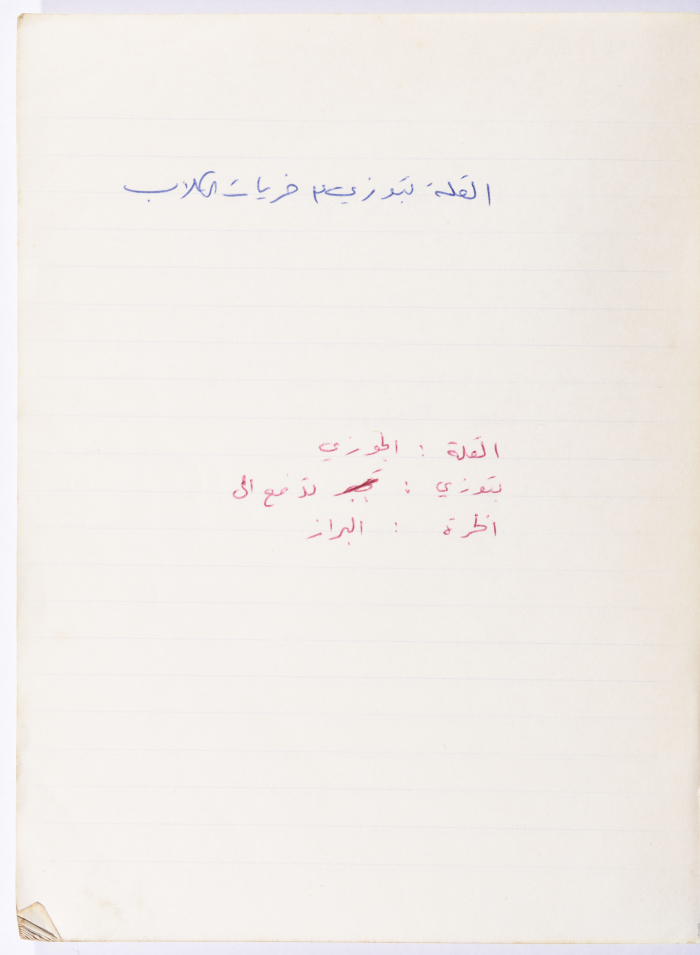 القلة بتوزي ٣ خريات الكلاب
القلة : الجوزي
بتوزي : تدفع الى
الخرة : البراز